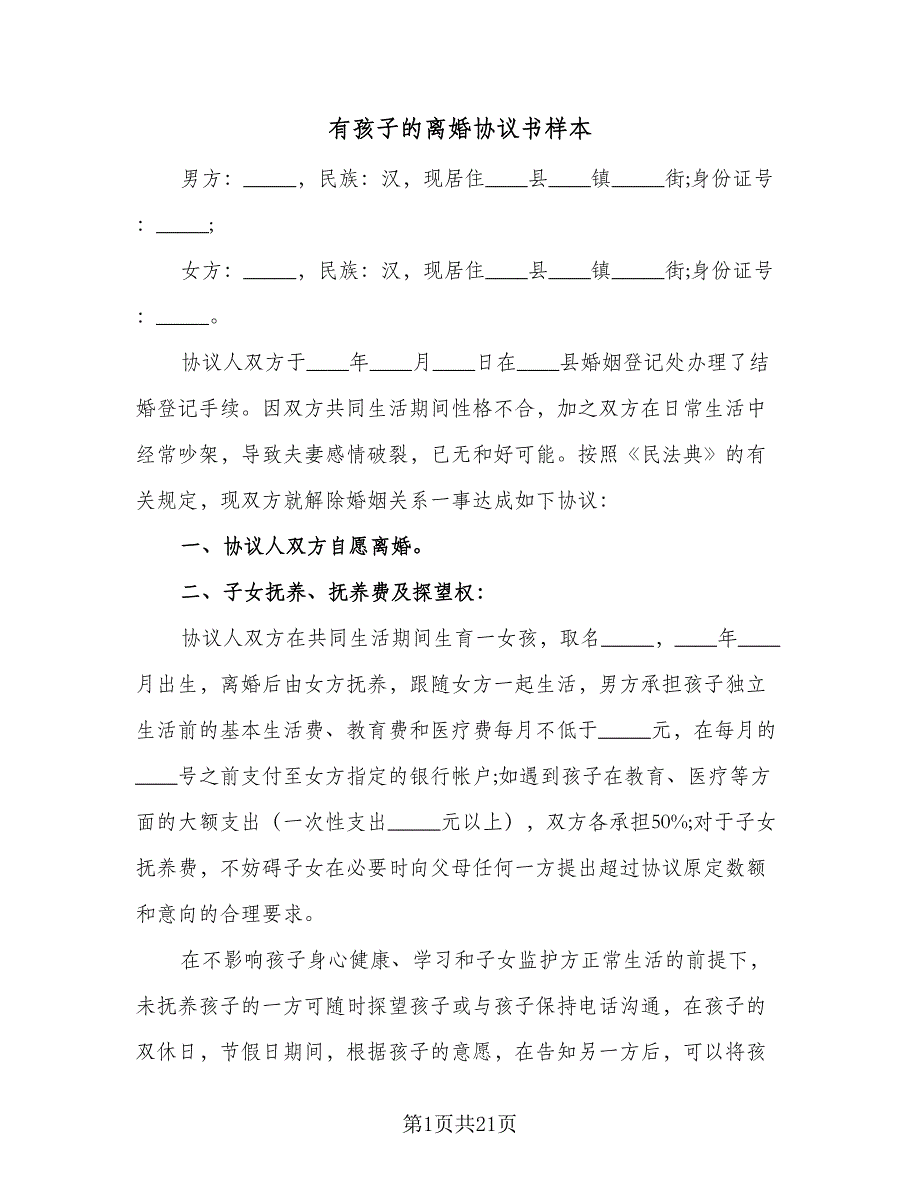 有孩子的离婚协议书样本
男方：_____，民族：汉，现居住____县____镇_____街;身份证号
：_____;
女方：_____，民族：汉，现居住____县____镇_____街;身份证号
：_____。
协议人双方于____年____月____日在____县婚姻登记处办理了结
婚登记手续。因双方共同生活期间性格不合，加之双方在日常生活中
经常吵架，导致夫妻感情破裂，已无和好可能。按照《民法典》的有
关规定，现双方就解除婚姻关系一事达成如下协议：
一、协议人双方自愿离婚。
二、子女抚养、抚养费及探望权：
协议人双方在共同生活期间生育一女孩，取名_____，____年____
月出生，离婚后由女方抚养，跟随女方一起生活，男方承担孩子独立
生活前的基本生活费、教育费和医疗费每月不低于_____元，在每月的
____号之前支付至女方指定的银行帐户;如遇到孩子在教育、医疗等方
面的大额支出（一次性支出_____元以上），双方各承担50%;对于子女
抚养费，不妨碍子女在必要时向父母任何一方提出超过协议原定数额
和意向的合理要求。
在不影响孩子身心健康、学习和子女监护方正常生活的前提下，
未抚养孩子的一方可随时探望孩子或与孩子保持电话沟通，在孩子的
双休日，节假日期间，根据孩子的意愿，在告知另一方后，可以将孩
第1页共21页